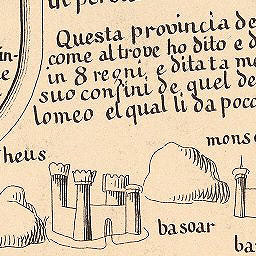 in perde
Questa provincia de
come altrove ho dito e d
in 8 regni, e ditata me
suo confini de quel de
lomeo el qual li da poco
in-
e
mons
heus
basoar
ba